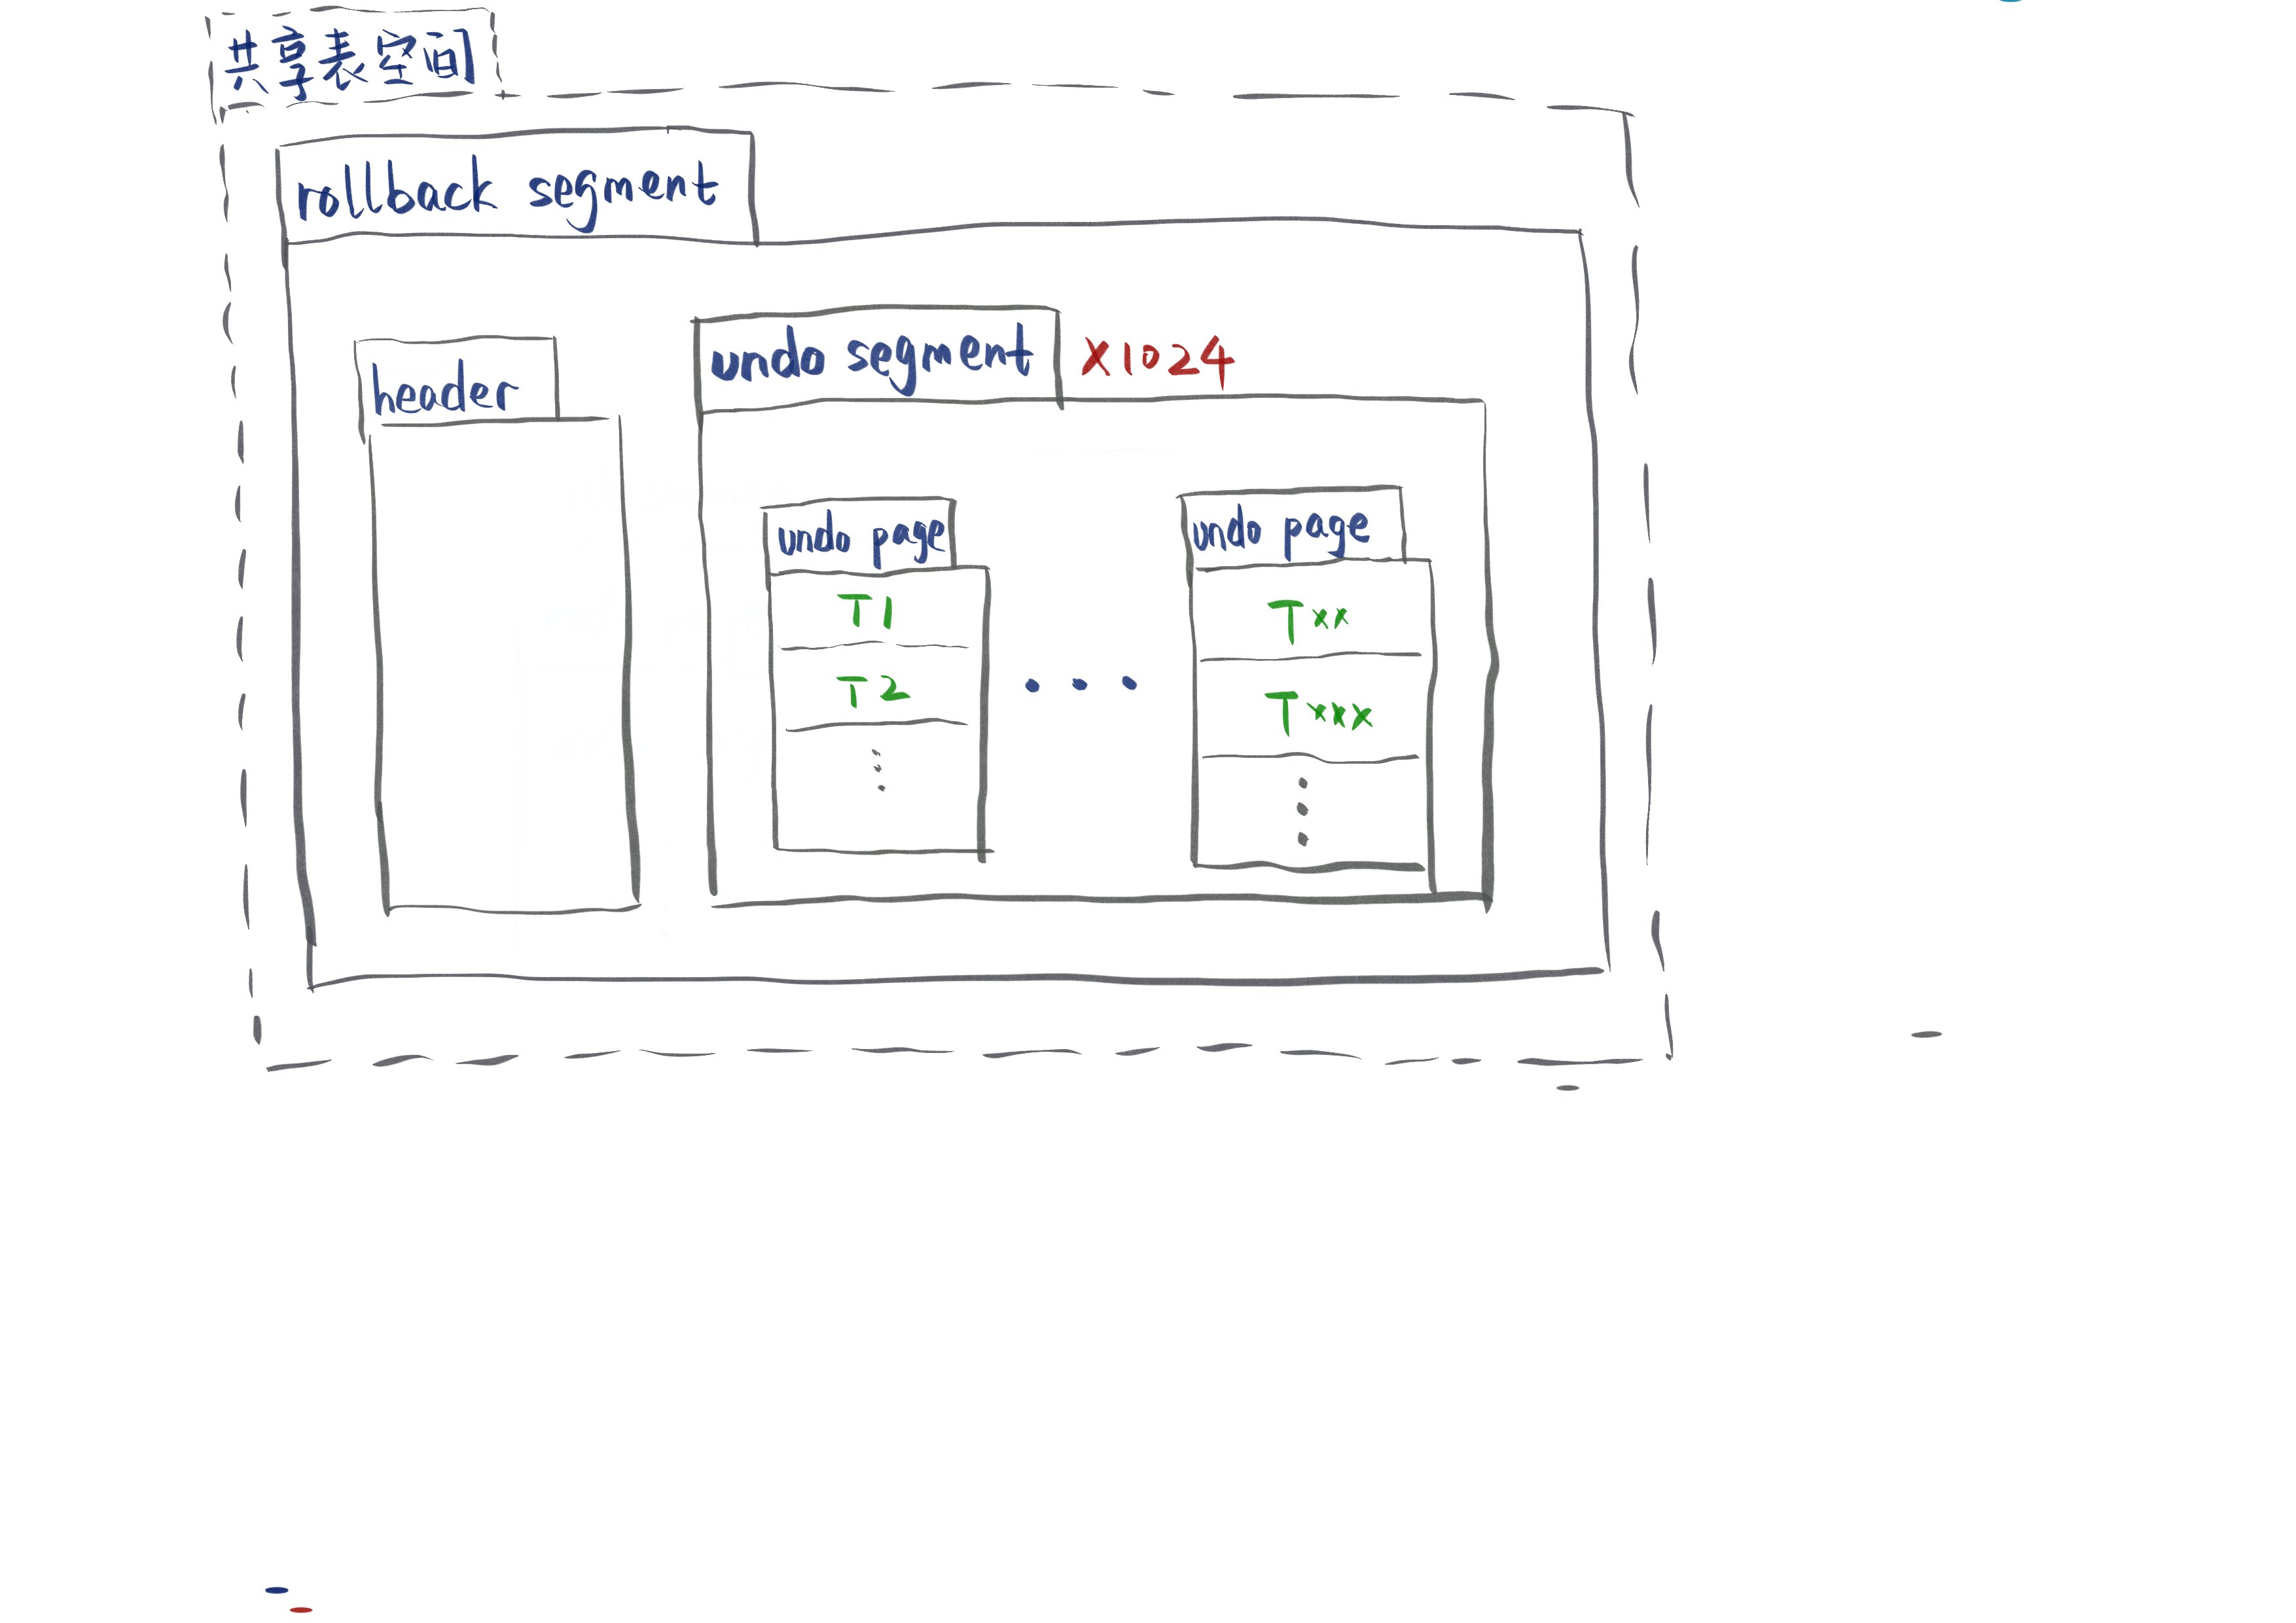 共享表空间
rollback segment
header
undo segment X1024
undo page
T1
T2
undo page
Txx
Txxx